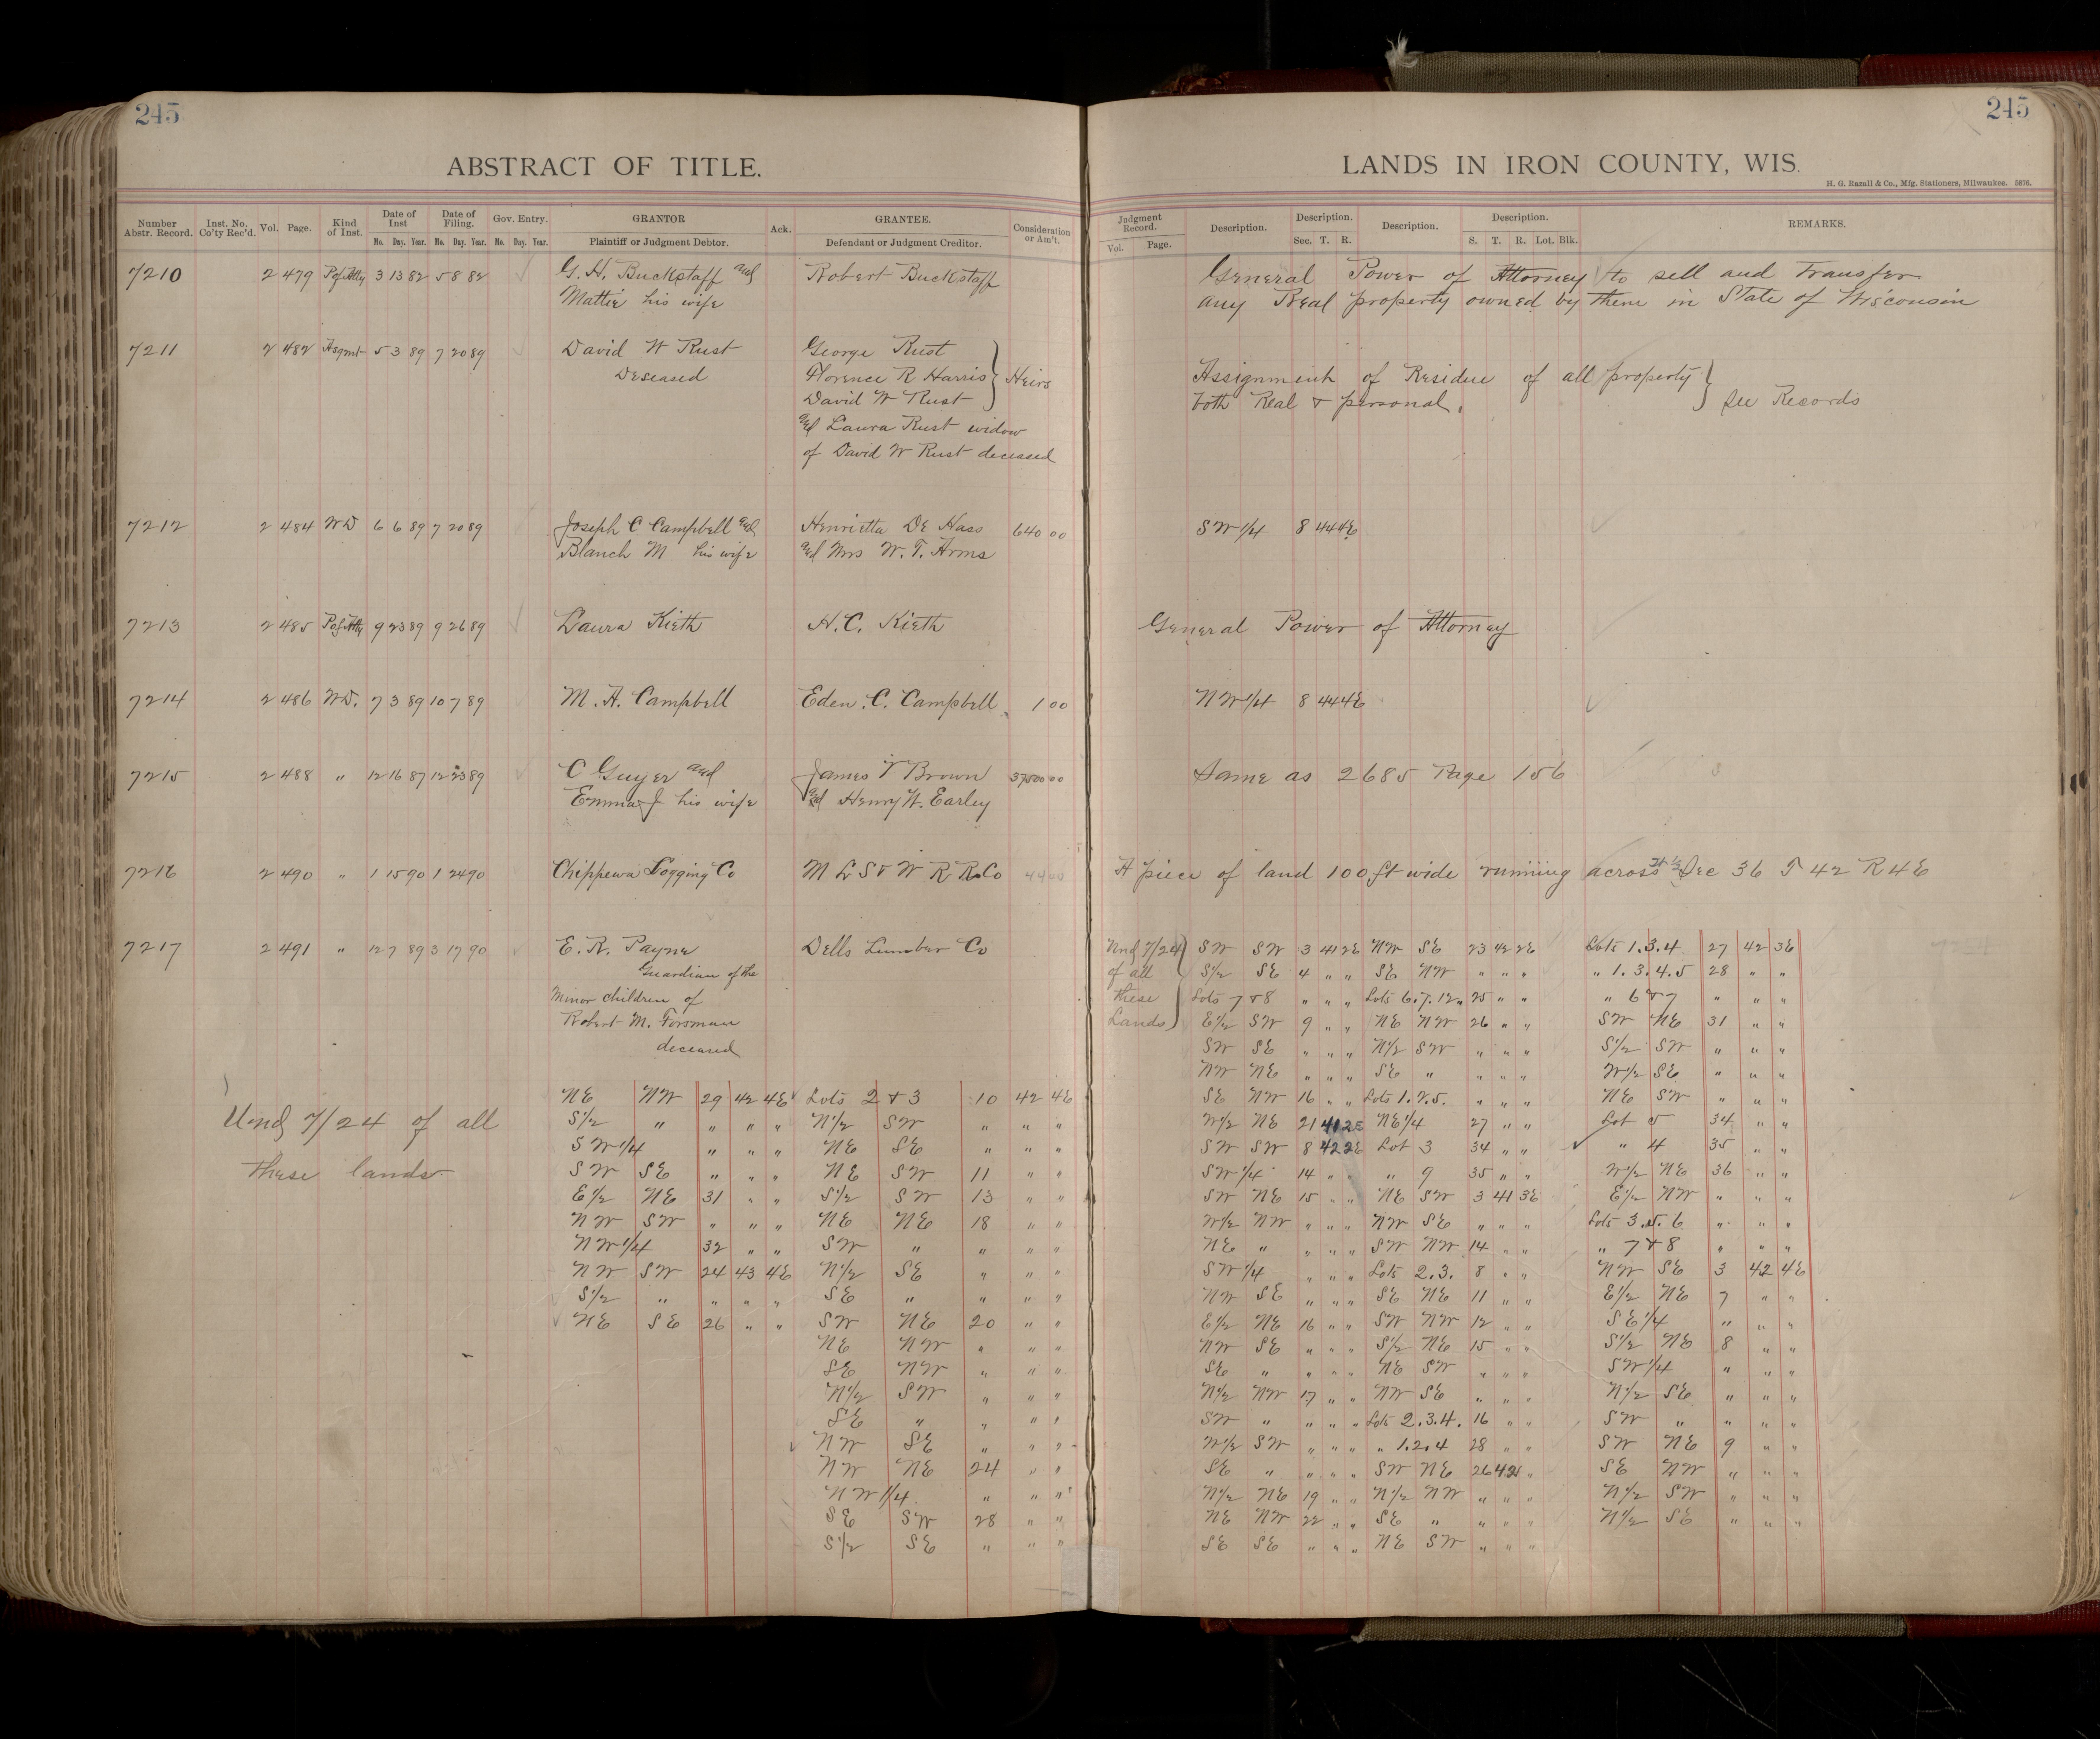 245
245
ABSTRACT OF TITLE.
LANDS IN IRON COUNTY, WIS.
H. G. Razall & Co., Mfg. Stationers, Milwaukee. 5876.
Number Abstr. Record. Inst. No. Co'ty Rec'd. Vol. Page. Kind of Inst. Date of Inst Mo. Day. Year. Date of Filing. Mo. Day. Year. Gov. Entry. Mo. Day. Year. GRANTOR Plaintiff or Judgment Debtor. Ack. GRANTEE. Defendant or Judgment Creditor. Consideration or Am't.
Judgment Record. Vol. Page. Description. Description. Sec. T. R. Description. Description. S. T. R. Lot. Blk. REMARKS.
7210 2 479 P of Atty 3 13 82 5 8 82 G. H. Buckstaff and Robert Buckstaff General Power of Attorney to sell and Transfer
Mattie his wife any Real property owned by them in State of Wisconsin
7211 2 482 Asgmt 5 3 89 7 20 89 David W Rust George Rust
Deseased Florence R Harris Heirs Assignment of Residue of all property
David W Rust both Real & personal. see Records
and Laura Rust widow
of David W Rust deceased
7212 2 484 WD 6 6 89 7 20 89 Joseph C Campbell and Henrietta De Hass 640 00 SW 1/4 8 44 4E
Blanch M his wife and Mrs W. T. Arms
7213 2 485 P of Atty 9 23 89 9 26 89 Laura Kieth H. C. Kieth General Power of Attorney
7214 2 486 WD. 7 3 89 10 7 89 M. A. Campbell Eden. C. Campbell 1 00 NW 1/4 8 44 4E
7215 2 488 " 12 16 87 12 23 89 C Guyer and James T Brown 37500 00 Same as 2685 Page 156
Emma J his wife and Henry W. Earley
7216 2 490 " 1 15 90 1 24 90 Chippewa Logging Co M L S & W R R Co 44 00 A piece of land 100 ft wide running across Sec 36 T 42 R 4E
7217 2 491 " 12 7 89 3 17 90 E. R. Payne Dells Lumber Co
Guardian of the
Minor children of
Robert M. Forsman
deceased
Und 7/24 of all
these lands
NE NW 29 42 4E Lots 2 & 3 10 42 4E
S1/2 " " " " N1/2 SW " " "
SW 1/4 " " " NE SE " " "
SW SE " " " NE SW 11 " "
E1/2 NE 31 " " S1/2 SW 13 " "
NW SW " " " NE NE 18 " "
NW 1/4 32 " " SW " " " "
NW SW 24 43 4E N1/2 SE " " "
S1/2 " " " " SE " " " "
NE SE 26 " " SW NE 20 " "
NE NW " " "
SE NW " " "
N1/2 SW " " "
SE " " " "
NW SE " " "
NW NE 24 " "
NW 1/4 " " "
SE SW 28 " "
S1/2 SE " " "
Und 7/24
of all
these
Lands
SW SW 3 41 2E NW SE 23 42 2E Lots 1.3.4 27 42 3E
S1/2 SE 4 " " SE NW " " " " 1.3.4.5 28 " "
Lots 7 & 8 " " " Lots 6.7.12. 25 " " " 6 & 7 " " "
E1/2 SW 9 " " NE NW 26 " " SW NE 31 " "
SW SE " " " N1/2 SW " " " S1/2 SW " " "
NW NE " " " SE " " " " W1/2 SE " " "
SE NW 16 " " Lots 1.2.5. " " " NE SW " " "
W1/2 NE 21 41 2E NE 1/4 27 " " Lot 5 34 " "
SW SW 8 42 2E Lot 3 34 " " " 4 35 " "
SW 1/4 14 " " " 9 35 " " W1/2 NE 36 " "
SW NE 15 " " NE SW 3 41 3E E1/2 NW " " "
W1/2 NW " " " NW SE " " " Lots 3.5.6 " " "
NE " " " " SW NW 14 " " " 7 & 8 " " "
SW 1/4 " " " Lots 2.3. 8 " " NW SE 3 42 4E
NW SE " " " SE NE 11 " " E1/2 NE 7 " "
E1/2 NE 16 " " SW NW 12 " " SE 1/4 " " "
NW SE " " " S1/2 NE 15 " " S1/2 NE 8 " "
SE " " " " NE SW " " " SW 1/4 " " "
N1/2 NW 17 " " NW SE " " " N1/2 SE " " "
SW " " " " Lots 2.3.4. 16 " " SW " " " "
W1/2 SW " " " " 1.2.4 28 " " SW NE 9 " "
SE " " " " SW NE 26 42 " SE NW " " "
N1/2 NE 19 " " N1/2 NW " " " N1/2 SW " " "
NE NW 22 " " SE " " " " N1/2 SE " " "
SE SE " " " NE SW " " "